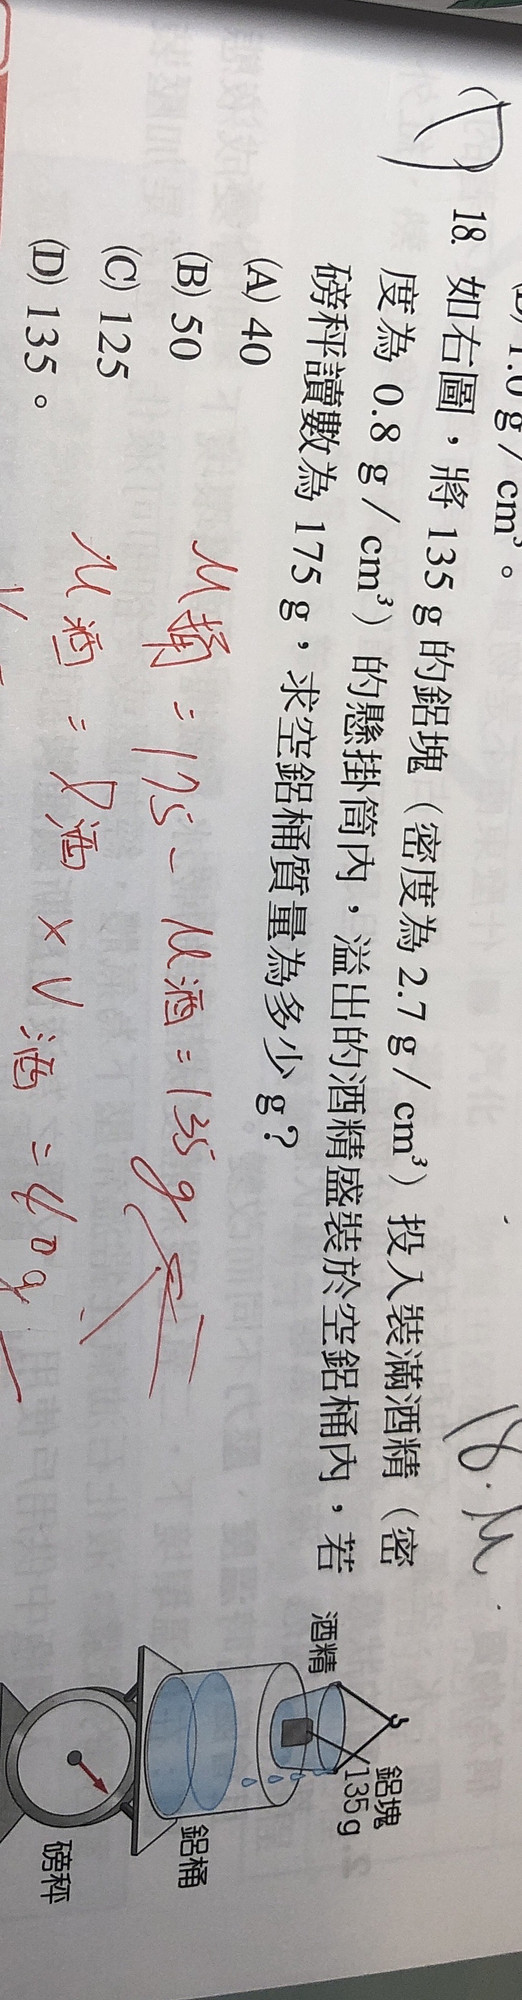 1.0 g / cm³。
(D) 18. 如右圖，將 135 g 的鋁塊（密度為 2.7 g / cm³）投入裝滿酒精（密
度為 0.8 g / cm³）的懸掛筒內，溢出的酒精盛裝於空鋁桶內，若
磅秤讀數為 175 g，求空鋁桶質量為多少 g？
(A) 40
(B) 50
(C) 125
(D) 135。
M桶 = 175 - M酒 = 135g
M酒 = ρ酒 × V酒 = 40g
18. M
酒精
鋁塊
135 g
鋁桶
磅秤